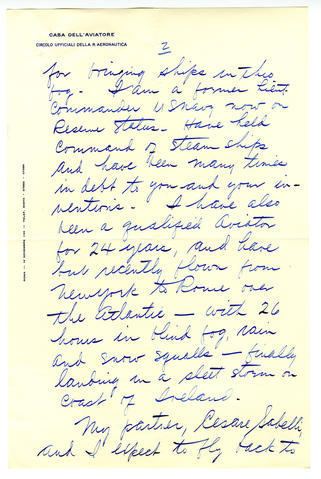 CASA DELL'AVIATORE
CIRCOLO UFFICIALI DELLA R. AERONAUTICA
2
for bringing ships in thro
fog - I am a former Lieut.
Commander US Navy now on
Reserve Status - Have held
Command of steam ships
and have been many times
in debt to you and your in-
ventions. I have also
been a qualified Aviator
for 24 years, and have
but recently flown from
New York to Rome over
the Atlantic - with 26
hours in blind fog, rain
and snow squalls - finally
landing in a sleet storm on
Coast of Ireland.
My partner, Cesare Sabelli,
and I expect to fly back to